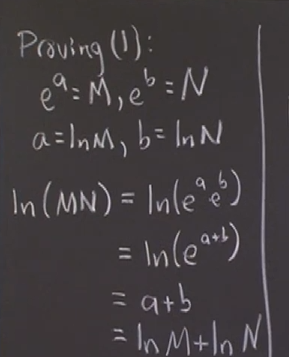 Proving (1):
e^a = M, e^b = N
a = ln M, b = ln N
ln(MN) = ln(e^a e^b)
= ln(e^{a+b})
= a+b
= ln M + ln N